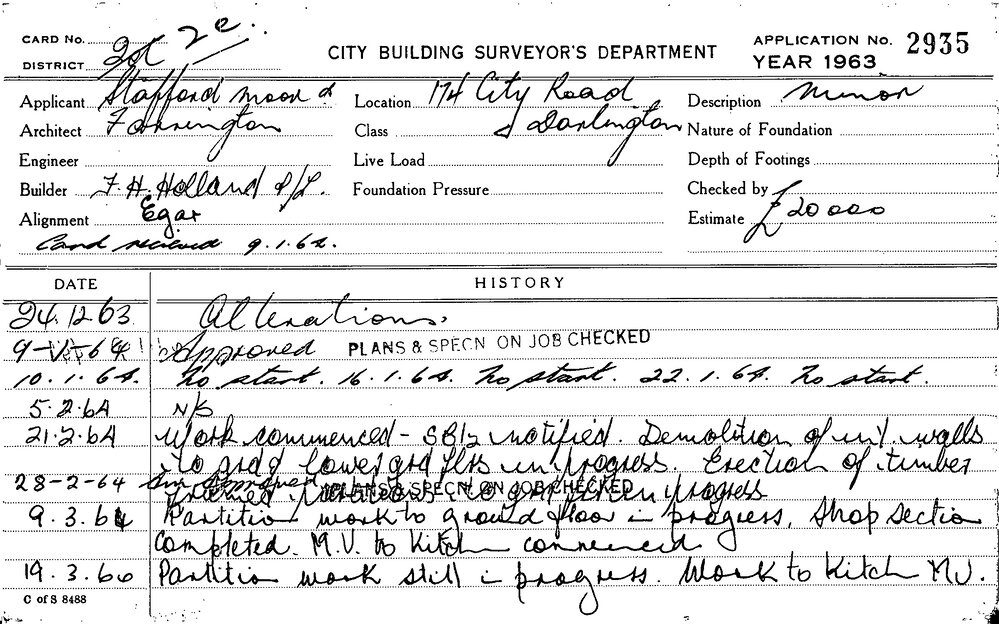 CARD No. 2e.
CITY BUILDING SURVEYOR'S DEPARTMENT
APPLICATION No. 2935
DISTRICT
YEAR 1963
Applicant Stafford Moor &
Location 174 City Road
Description Minor
Architect Farrington
Class Darlington
Nature of Foundation
Engineer
Live Load
Depth of Footings
Builder F. H. Holland P/L.
Foundation Pressure
Checked by
Alignment Egar
Estimate £20000
Card received 9.1.64.
DATE HISTORY
24.12.63 Alterations.
9-1-64 Approved PLANS & SPECN ON JOB CHECKED
10.1.64. No start. 16.1.64. No start. 22.1.64. No start.
5.2.64 N/S
21.2.64 Work commenced - SB12 notified. Demolition of int walls
to grd & lower grd flrs in progress. Erection of timber
framed partitions to grd in progress
28-2-64 PLANS & SPECN ON JOB CHECKED
9.3.64 Partition work to ground floor in progress. Shop section
completed. M.V. to Kitch commenced.
19.3.64 Partition work still in progress. Work to Kitch M.V.
C of S 8488